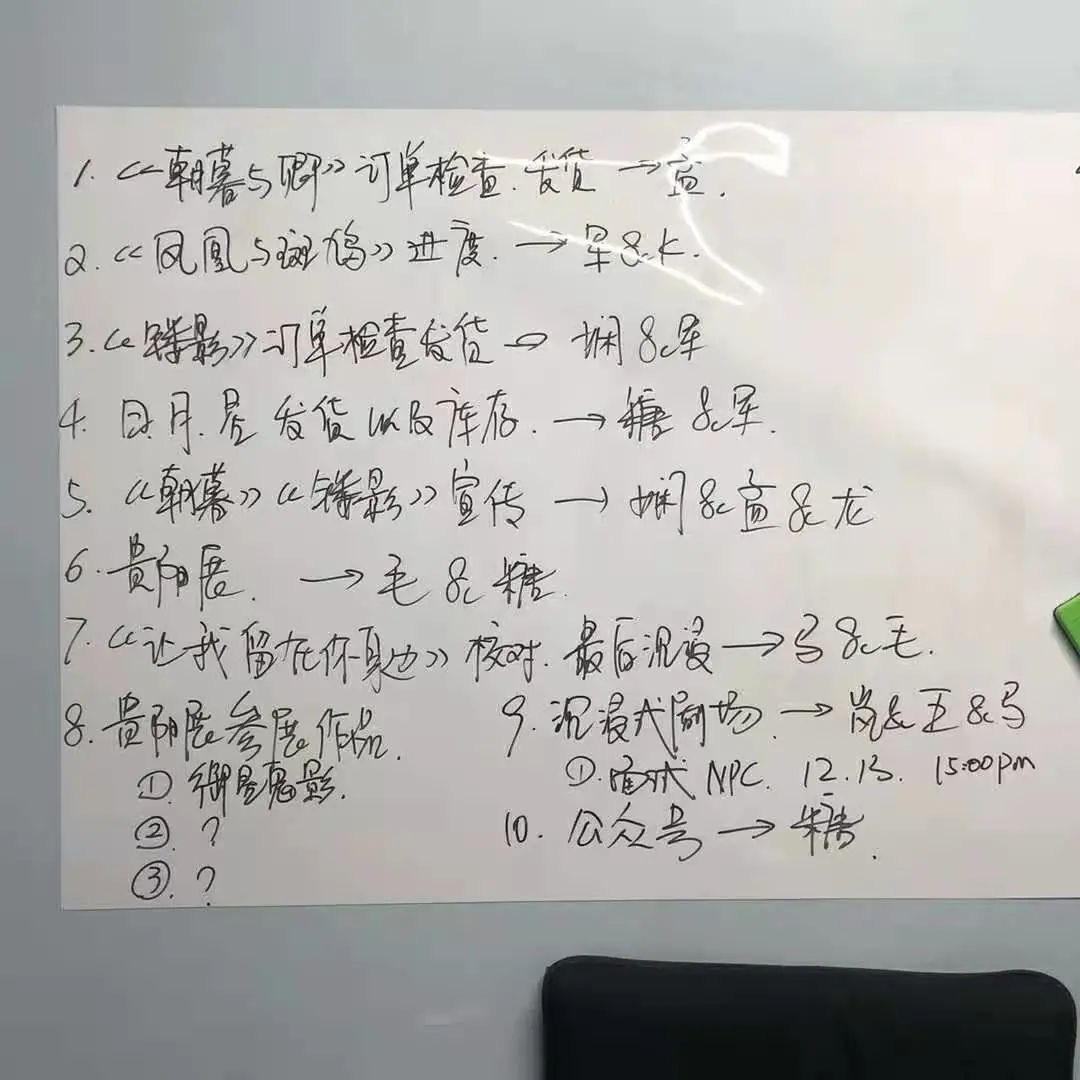 1. 《朝暮与卿》订单检查.发货 →
2. 《凤凰与斑鸠》进度. → 军&K.
3. 《影》订单检查发货 → 娴&军
4. 日.月.星 发货以及库存. → 糖&军.
5. 《朝暮》《影》宣传 → 娴&&龙
6. 贵阳展. → 毛&糖.
7. 《让我留在你身边》核对.最后沉浸 → 马&毛.
8. 贵阳展参展作品.
① 影.
② ?
③ ?
9. 沉浸式剧场. → 岚&王&马
①. 面试 NPC. 12.13. 15:00pm
10. 公众号 → 糖.